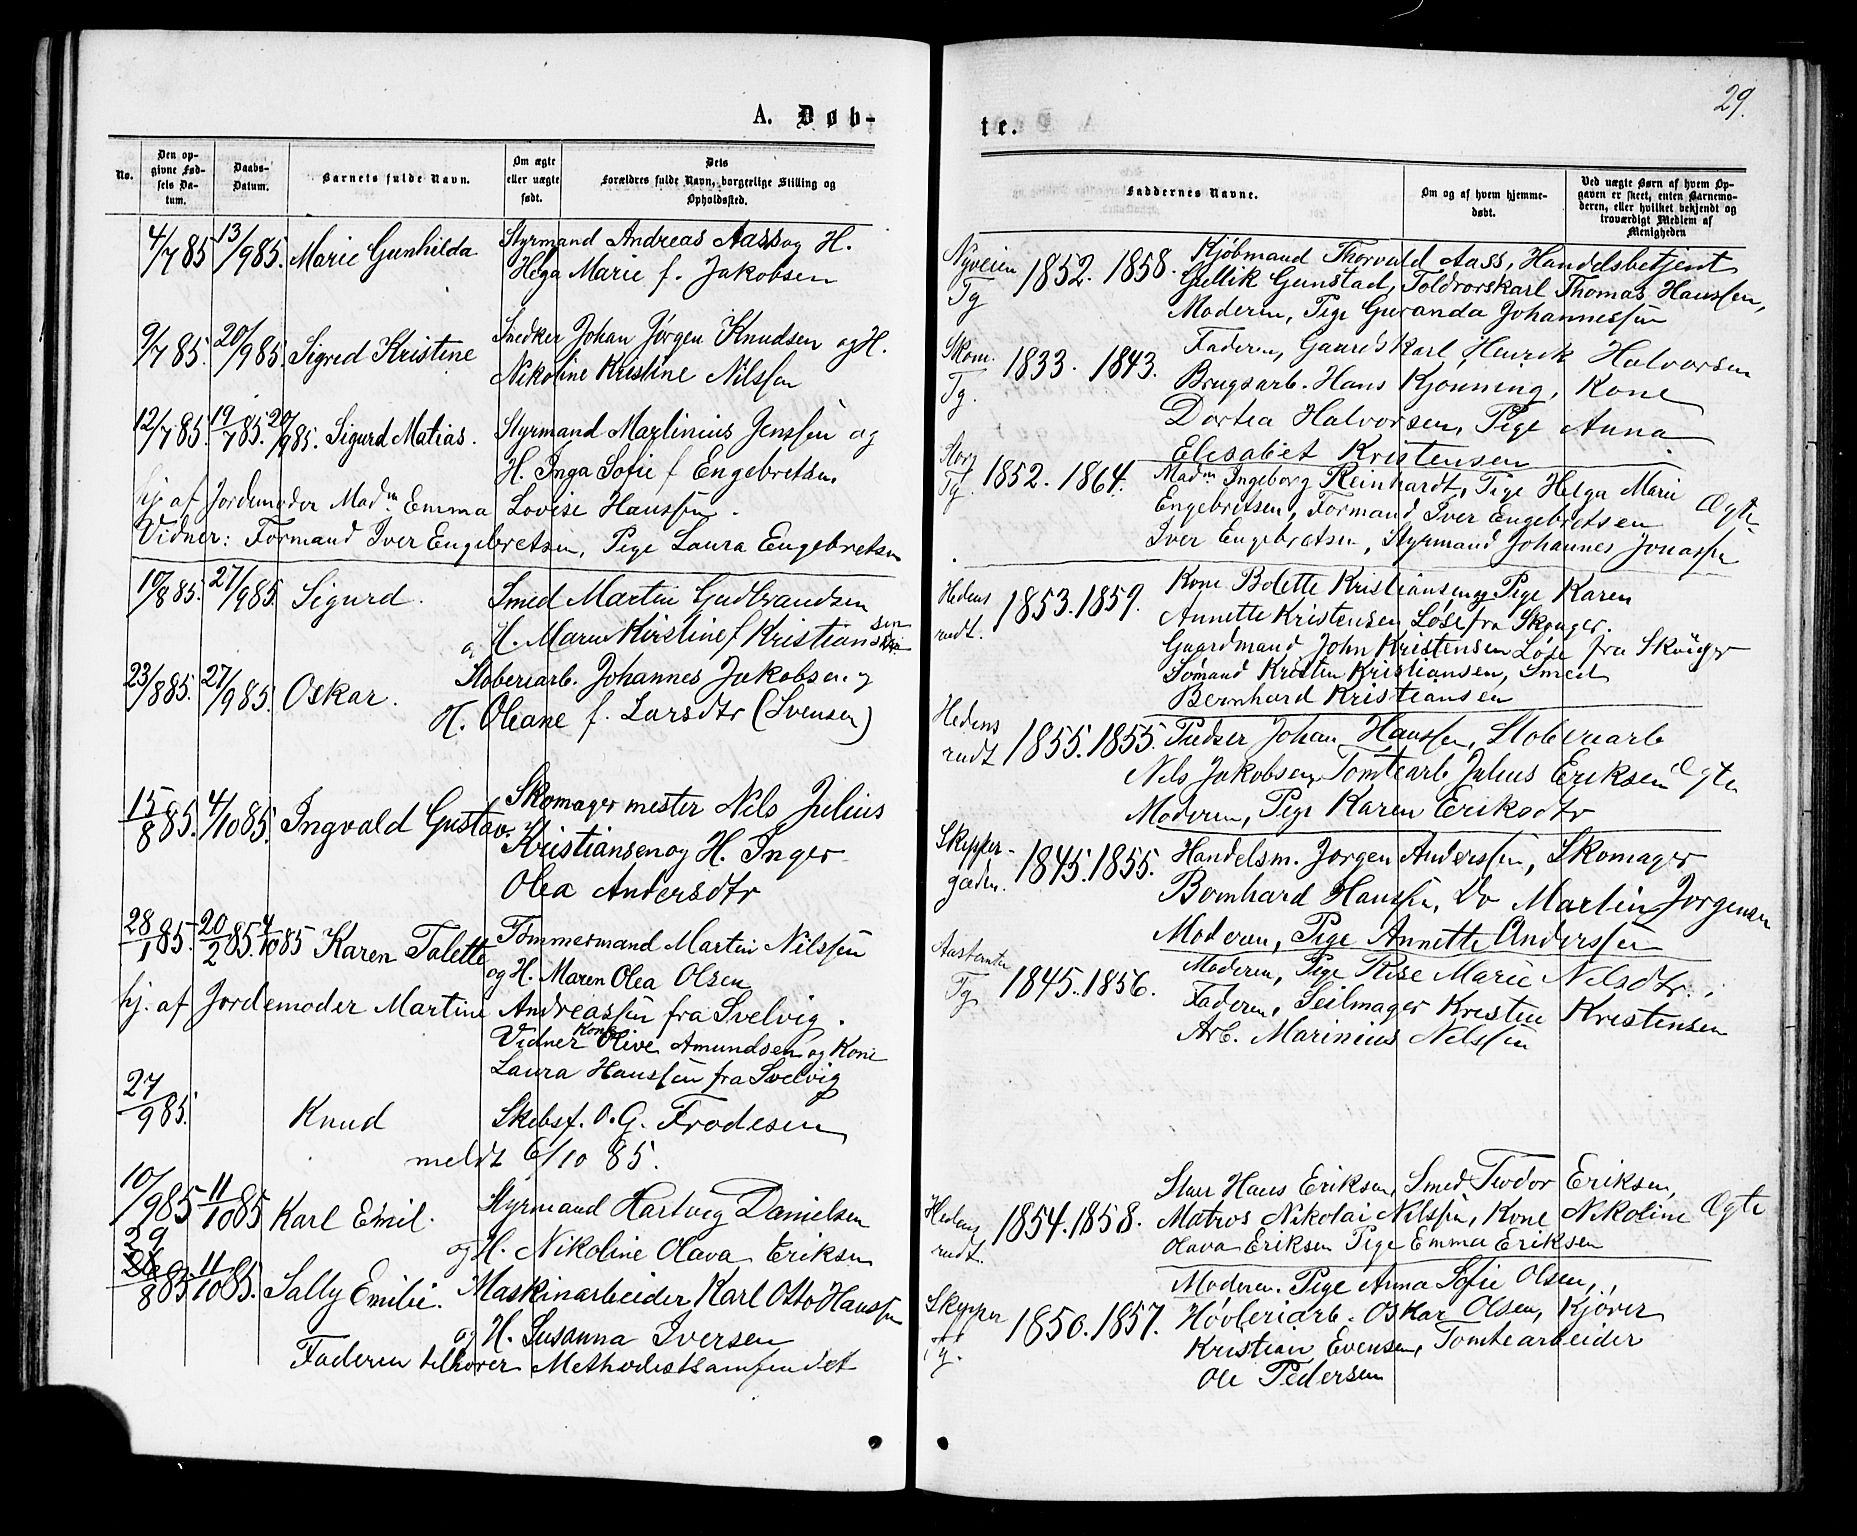 A. Døb-
No.
Den op-
givne Fød-
sels Da-
tum.
Daabs-
Datum.
Barnets fulde Navn.
Om ægte
eller uægte
født.
Dets
Forældres fulde Navn, borgerlige Stilling og
Opholdssted.
4/7 85 13/9 85. Marie Gunhilda Styrmand Andreas Aass og H.
Helga Marie f. Jakobsen
9/7 85. 20/9 85. Sigred Kristine Snedker Johan Jørgen Knudsen og H.
Nikoline Kristine Nilssen
12/7 85. 19/7 85. 20/9 85. Sigurd Matias. Styrmand Martinius Jenssen og
H. Inga Sofie f Engebretsen.
hj. af Jordemoder Madm. Emma Lovise Hanssen.
Vidner: Formand Iver Engebretsen, Pige Laura Engebretsen
10/8 85. 27/9 85. Sigurd. Smed Martin Gudbrandsen
og H. Maren Kirstine f Kristiansen
23/8 85. 27/9 85. Oskar. Støberiarb. Johannes Jakobsen og
H. Oleane f. Larsdtr (Svensen)
15/8 85. 4/10 85. Ingvald Gustav. Skomagermester Nils Julius
Kristiansen og H. Inger
Olea Andersdtr
28/1 85. 20/2 85. 4/10 85 Karen Talette Tømmermand Martin Nilssen
og H. Maren Olea Olsen
hj. af Jordemoder Martine Andreassen fra Svelvig.
Vidner Kone Olive Amundsen og Kone
Laura Hanssen fra Svelvig
27/9 85. Knud Skibsf. O. G. Frodesen
meldt 6/10 85.
10/9 85 11/10 85 Karl Emil. Styrmand Hartvig Danielsen
og H. Nikoline Olava Eriksen
29
26/8 85 11/10 85. Sally Emilie. Maskinarbeider Karl Otto Hanssen
og H. Susanna Iversen
Faderen tilhører Methodistsamfundet
29.
te.
Faddernes Navne.
Om og af hvem hjemme-
døbt.
Ved uægte Børn af hvem Op-
gaven er skeet, enten Barnemo-
deren, eller hvilket bekjendt og
troværdigt Medlem af
Menigheden
Nyveien
Tg 1852. 1858. Kjøbmand Thorvald Aass, Handelsbetjent
Gullik Gunstad, Toldrorskarl Thomas Hanssen,
Moderen, Pige Guranda Johannessen
Skom.
Tg. 1833. 1843. Faderen, Gaardskarl Henrik Halvorsen
Brugsarb. Hans Kjønning, Kone
Dortea Halvorsen, Pige Anna
Elisabet Kristensen
Storg
Tg. 1852. 1864. Madm Ingeborg Reinhardt, Pige Helga Marie
Engebretsen, Formand Iver Engebretsen Ægte
Iver Engebretsen, Styrmand Johannes Jonassen
Hedens
rudt. 1853. 1859. Kone Bolette Kristiansen og Pige Karen
Annette Kristensen Løse fra Skouger.
Gaardmand John Kristensen Løse fra Skouger
Sømand Kristen Kristiansen, Smed
Bernhard Kristiansen
Hedens
rudt 1855. 1855. Pudser Johan Hanssen, Støberiarb
Nils Jakobsen, Tomtearb Julius Eriksen Ægte
Moderen, Pige Karen Eriksdtr
Skipper-
gaden. 1845. 1855. Handelsm. Jørgen Anderssen, Skomager
Bernhard Hanssen, Do Martin Jørgensen
Moderen, Pige Annette Anderssen
Aastomten
Tg 1845. 1856. Moderen, Pige Rise Marie Nilsdtr.
Faderen, Seilmager Kristen Kristensen
Arb. Marinius Nilssen
Hedens
rudt. 1854. 1858. Stuer Hans Eriksen, Smed Tvodor Eriksen,
Matros Nikolai Nilssen, Kone Nikoline Ægte
Olava Eriksen Pige Emma Eriksen
Skipper
Tg. 1850. 1857. Moderen. Pige Anna Sofie Olsen,
Høvleriarb. Oskar Olsen, Kjører
Kristian Evensen, Tomtearbeider
Ole Pedersen